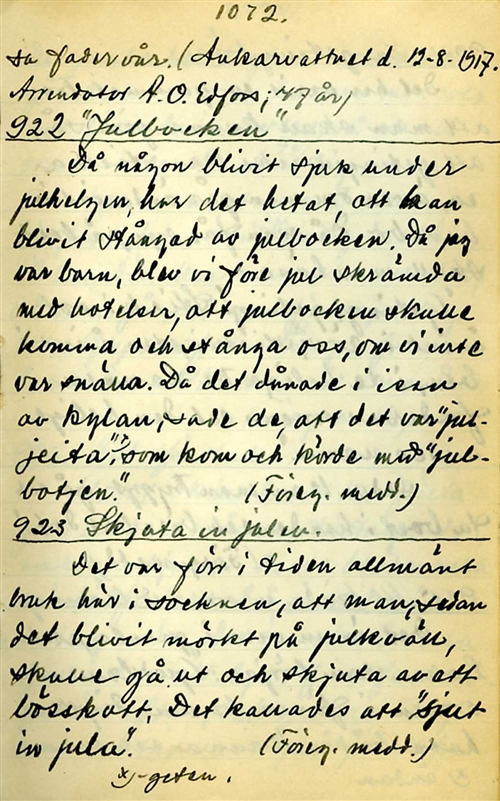 1072.
sa fader vår. (Ankarvattnet d. 12-8-1917.
Arrendator A. O. Edfors; 47 år)
922 "Julbocken"
Då någon blivit sjuk under
julhelgen, har det hetat, att han
blivit stångad av julbocken. Då jag
var barn, blev vi före jul skrämda
med hotelser, att julbocken skulle
komma och stånga oss, om vi inte
var snälla. Då det dånade i isen
av kylan, sade de, att det var "jul-
jeita",x) som kom och körde med "jul-
botjen." (Föreg. medd.)
923 Skjuta in julen.
Det var förr i tiden allmänt
bruk här i socknen, att man, sedan
det blivit mörkt på julkväll,
skulle gå ut och skjuta av ett
bösskott. Det kallades att "sjut
in jula". (Föreg. medd.)
x) -geten.